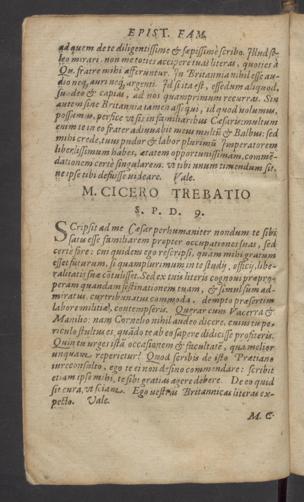 EPIST. FAM.
ad quem de te diligentissime & sæpissime scribo. Illud so-
leo mirari, non me toties accipere tuas literas, quoties à
Qu. fratre mihi afferuntur. In Britannia nihil esse au-
dio neq; auri neq; argenti. Id si ita est, essedum aliquod,
suadeo & capias, ad nos quamprimum recurras. Sin
autem sine Britannia tamen assequi, id quod volumus,
possumus, perfice vt sis in familiaribus Cæsaris: multum
enim te in eo frater adiuuabit meus multũ & Balbus: sed
mihi crede, tuus pudor & labor plurimũ. Imperatorem
liberalissimum habes, ætatem opportunissimam, commẽ-
dationem certè singularem: vt tibi vnum timendum sit,
ne ipse tibi defuisse videare. Vale.
M. CICERO TREBATIO
S. P. D. 9.
SCripsit ad me Cæsar perhumaniter nondum te sibi
satis esse familiarem propter occupationes suas, sed
certè fore: cui quidem ego rescripsi, quam mihi gratum
esset futurum, si quamplurimum in te studij, officij, libe-
ralitatis suæ cõtulisset. Sed ex tuis literis cognoui præpro-
peram quandam festinationem tuam, & simul sum ad-
miratus, cur tribunatus commoda, dempto præsertim
labore militiæ, contempseris. Querar cum Vacerra &
Manilio: nam Cornelio nihil audeo dicere, cuius tu pe-
riculo stultus es, quãdo te ab eo sapere didicisse profiteris.
Quin tu vrges istã occasionem & facultatẽ, qua melior
vnquam reperietur? Quod scribis de isto Pretiano
iureconsulto, ego te ei non desino commendare: scribit
etiam ipse mihi, te sibi gratias agere debere. De eo quid
sit cura, vt sciam. Ego vestras Britannicas literas ex-
pecto. Vale.
M. C.